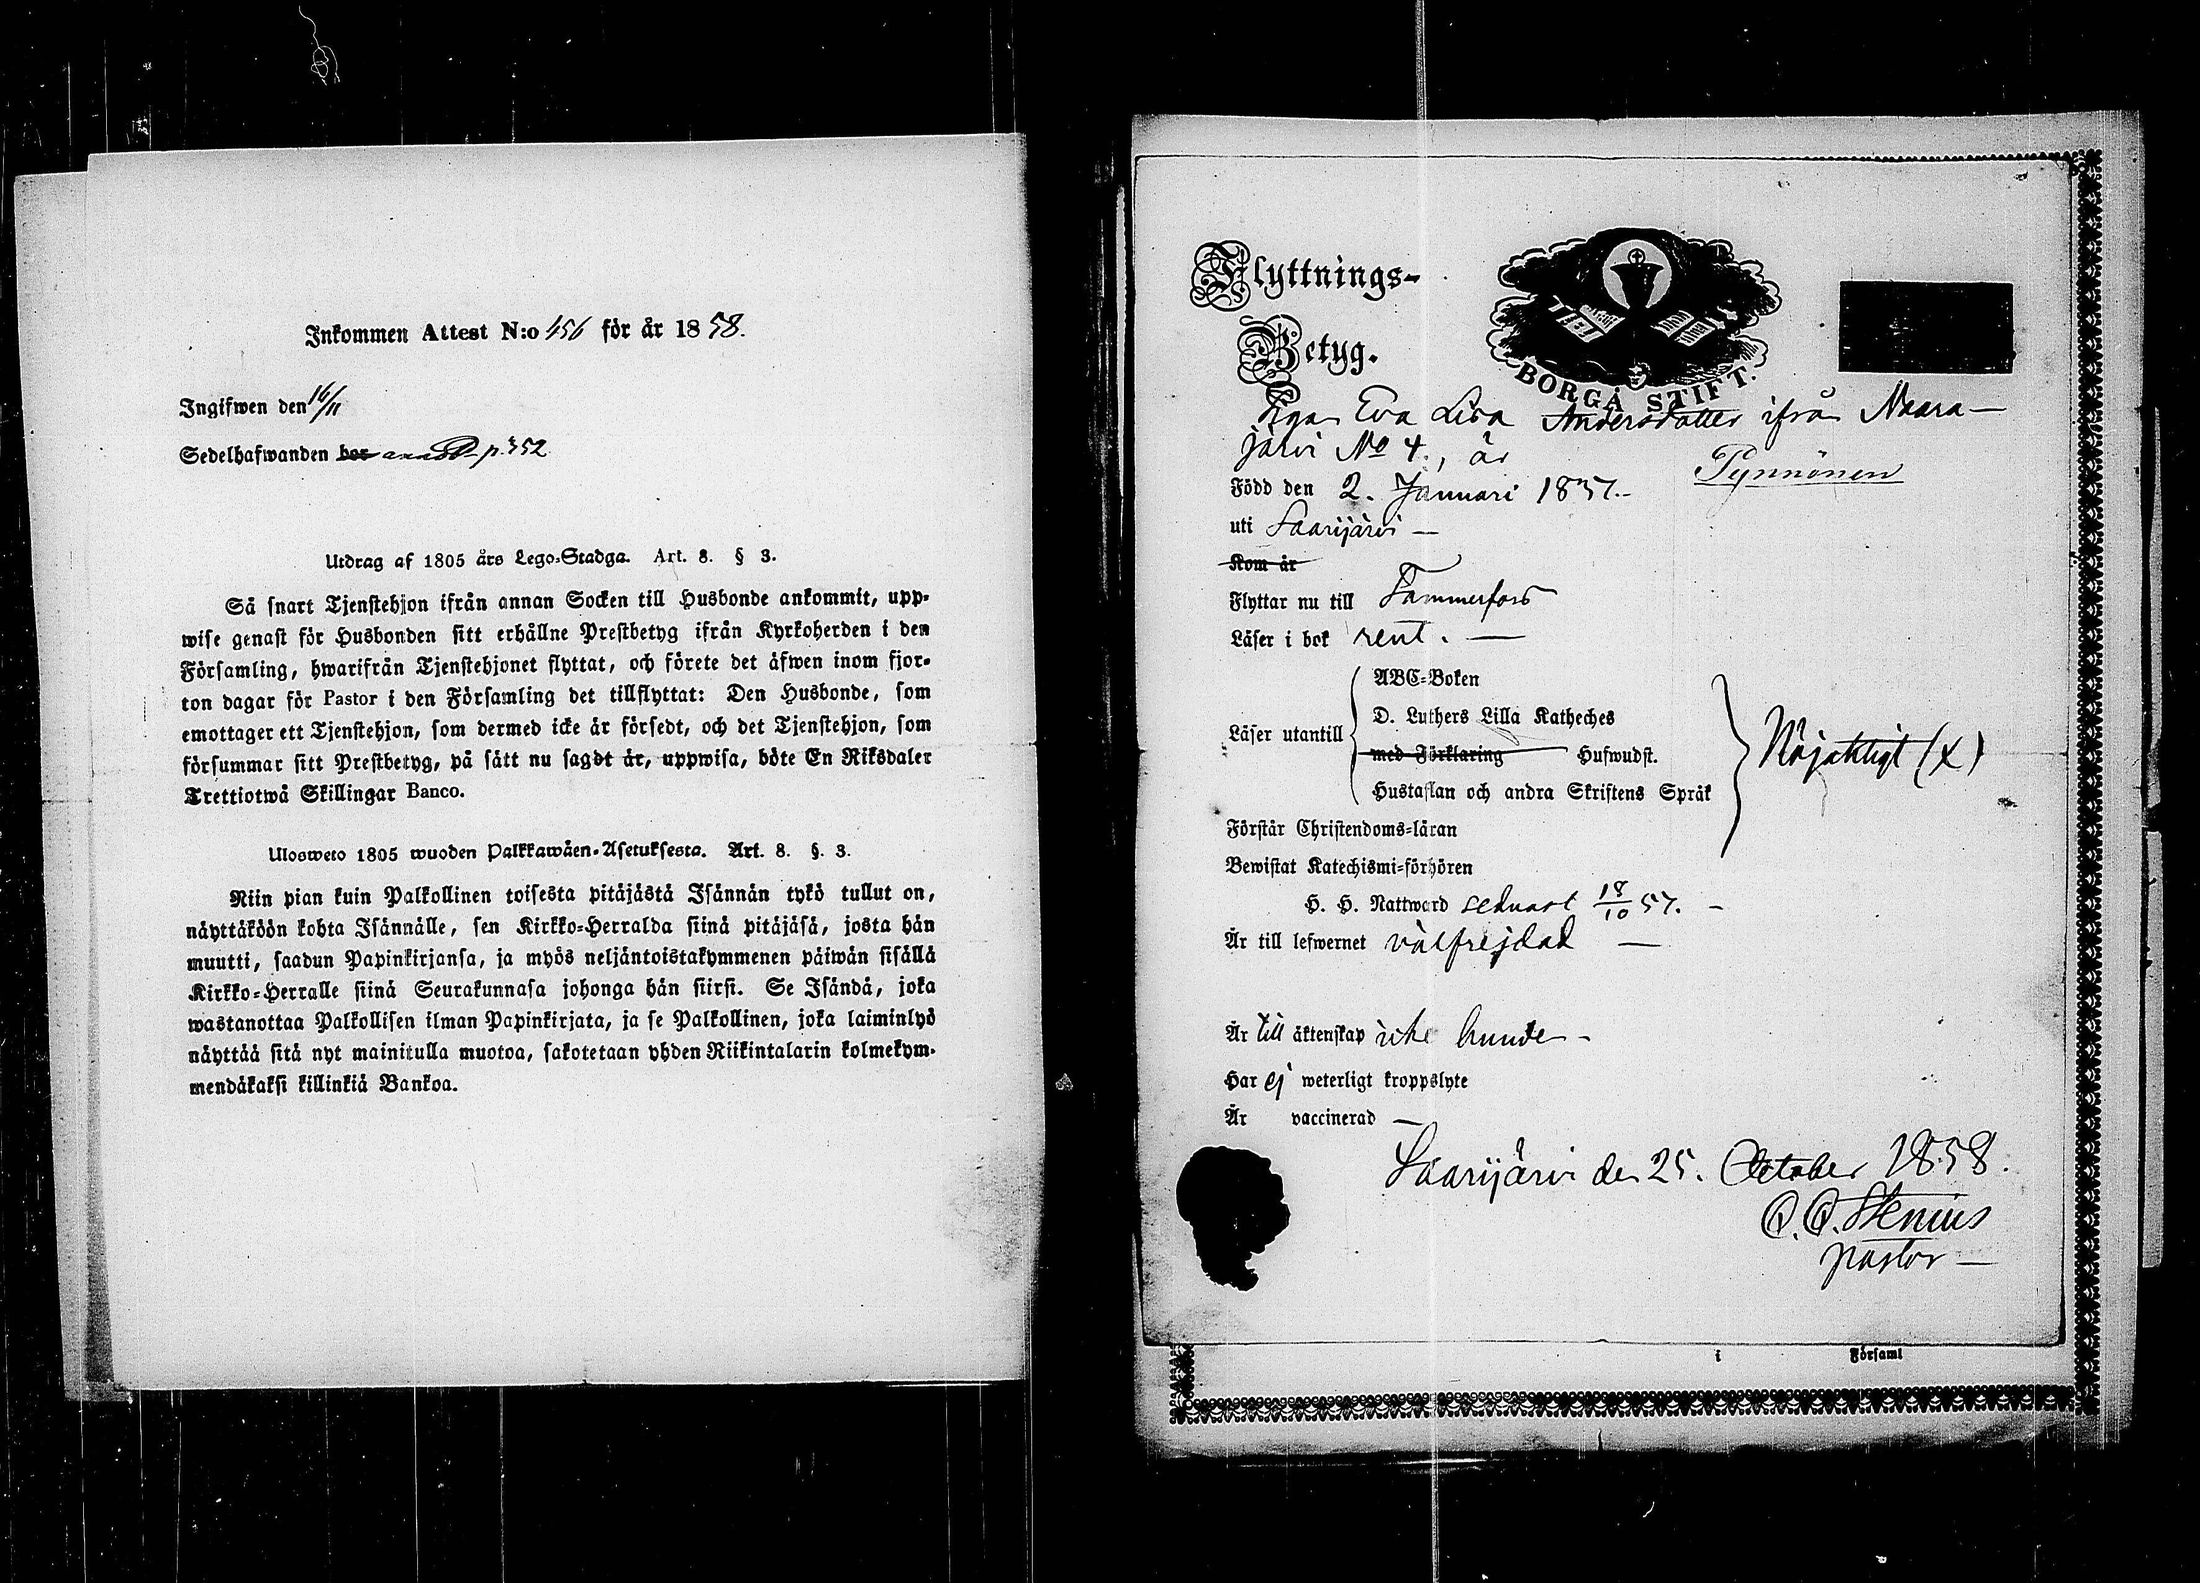 Inkommen Attest N:o 456 för år 1858.
Ingifwen den 16/11
Sedelhafwanden bor p. 352
Utdrag af 1805 års Lego-Stadga. Art. 8. § 3.
Så snart Tjenstehjon ifrån annan Socken till Husbonde ankommit, upp-
wise genast för Husbonden sitt erhållne Prestbetyg ifrån Kyrkoherden i den
Församling, hwarifrån Tjenstehjonet flyttat, och förete det äfwen inom fjor-
ton dagar för Pastor i den Församling det tillflyttat: Den Husbonde, som
emottager ett Tjenstehjon, som dermed icke är försedt, och det Tjenstehjon, som
försummar sitt Prestbetyg, på sätt nu sagdt är, uppwisa, böte En Riksdaler
Trettiotwå Skillingar Banco.
Ulosweto 1805 wuoden Palkkawäen-Asetuksesta. Art. 8. §. 3.
Niin pian kuin Palkollinen toisesta pitäjästä Isännän tykö tullut on,
näyttäköön kohta Isännälle, sen Kirkko-Herralda siinä pitäjäsä, josta hän
muutti, saadun Papinkirjansa, ja myös neljäntoistakymmenen päiwän sisällä
Kirkko-Herralle siinä Seurakunnasa johonga hän siirsi. Se Isändä, joka
wastanottaa Palkollisen ilman Papinkirjata, ja se Palkollinen, joka laiminlyö
näyttää sitä nyt mainitulla muotoa, sakotetaan yhden Riikintalarin kolmekym-
mendäkaksi killinkiä Bankoa.
Flyttnings-
Betyg.
BORGÅ STIFT.
Pigan Eva Lisa Andersdotter ifrån Naara-
järvi No 4., är
Pynnönen
Född den 2. Januari 1837.
uti Saarijärvi —
Kom år
Flyttar nu till Tammerfors
Läser i bok rent. —
Läser utantill
ABC-Boken
D. Luthers Lilla Katheches
med Förklaring Hufwudst.
Hustaflan och andra Skriftens Språk
Nöjaktigt (x)
Förstår Christendoms-läran
Bewistat Katechismi-förhören
H. H. Nattward sednast 18/10 57. —
Är till lefwernet välfrejdad —
Är till äktenskap icke bunden -
Har ej weterligt kroppslyte
Är vaccinerad —
Saarijärvi den 25. October 1858.
Stenius
pastor —
i Församl